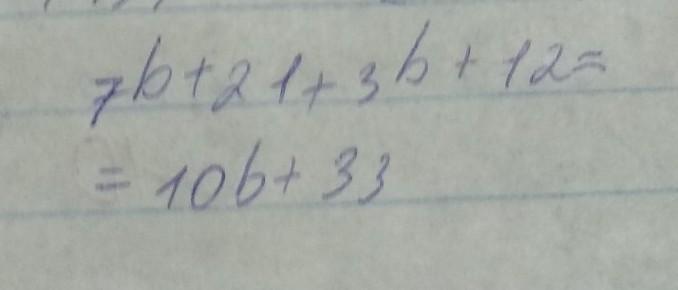 7b+21+3b+12=
=10b+33